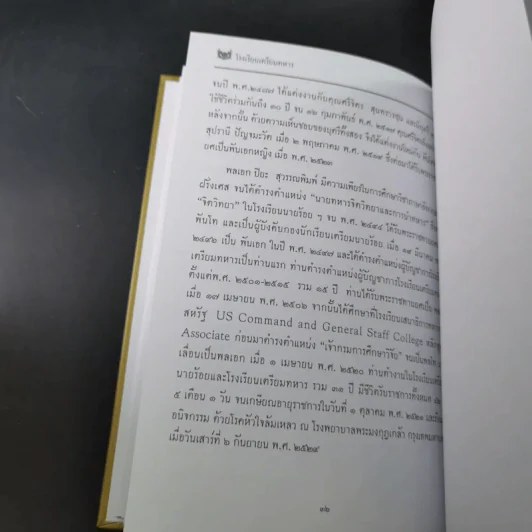 โรงเรียนเตรียมทหาร
จนปี พ.ศ.๒๔๘๗ ได้แต่งงานกับคุณศรีจิตร สุนทร
ใช้ชีวิตร่วมกันถึง ๓๐ ปี จน ๑๖ กุมภาพันธ์ พ.ศ. ๒๕๑๗ คุณศรี
หลังจากนั้น ด้วยความเห็นชอบของบุตรีทั้งสอง จึงได้แต่งงานใหม่กับ
สุปรานี ปัญฑะวัต เมื่อ ๒ พฤษภาคม พ.ศ. ๒๕๑๙ ซึ่งต่อมาได้
ยศเป็นพันเอกหญิง เมื่อ พ.ศ. ๒๕๒๑
พลเอก ปิยะ สุวรรณพิมพ์ มีความเพียรในการศึกษาวิชาภาษา
ฝรั่งเศส จนได้ดำรงตำแหน่ง "นายทหารจิตวิทยาและการนำทหาร"
"จิตวิทยา" ในโรงเรียนนายร้อย ฯ จน พ.ศ. ๒๔๙๔ ได้รับพระราชทาน
พันโท และเป็นผู้บังคับกองนักเรียนเตรียมนายร้อย เมื่อ ๑๙ มีนาคม
๒๔๙๖ เป็น พันเอก ในปี พ.ศ. ๒๔๙๗ และได้ดำรงตำแหน่งผู้บัญชาการโรงเรียน
เตรียมทหารเป็นท่านแรก ท่านดำรงตำแหน่งผู้บัญชาการโรงเรียนเตรียม
ตั้งแต่พ.ศ. ๒๕๐๑-๒๕๑๕ รวม ๑๕ ปี ท่านได้รับพระราชทานยศ
เมื่อ ๑๗ เมษายน พ.ศ. ๒๕๐๖ จากนั้นได้ศึกษาที่โรงเรียนเสนาธิการทหาร
สหรัฐ US Command and General Staff College
Associate ก่อนมาดำรงตำแหน่ง "เจ้ากรมการศึกษาวิจัย" จนเป็น
เลื่อนเป็นพลเอก เมื่อ ๑ เมษายน พ.ศ. ๒๕๒๐ ท่านทำงานในโรงเรียน
นายร้อยและโรงเรียนเตรียมทหาร รวม ๓๑ ปี มีชีวิตรับราชการทั้งหมด
๕ เดือน ๑ วัน จนเกษียณอายุราชการในวันที่ ๑ ตุลาคม พ.ศ. ๒๕๒๑
อนิจกรรม ด้วยโรคหัวใจล้มเหลว ณ โรงพยาบาลพระมงกุฎเกล้า กรุงเทพ
เมื่อวันเสาร์ที่ ๖ กันยายน พ.ศ. ๒๕๒๙
๓๖